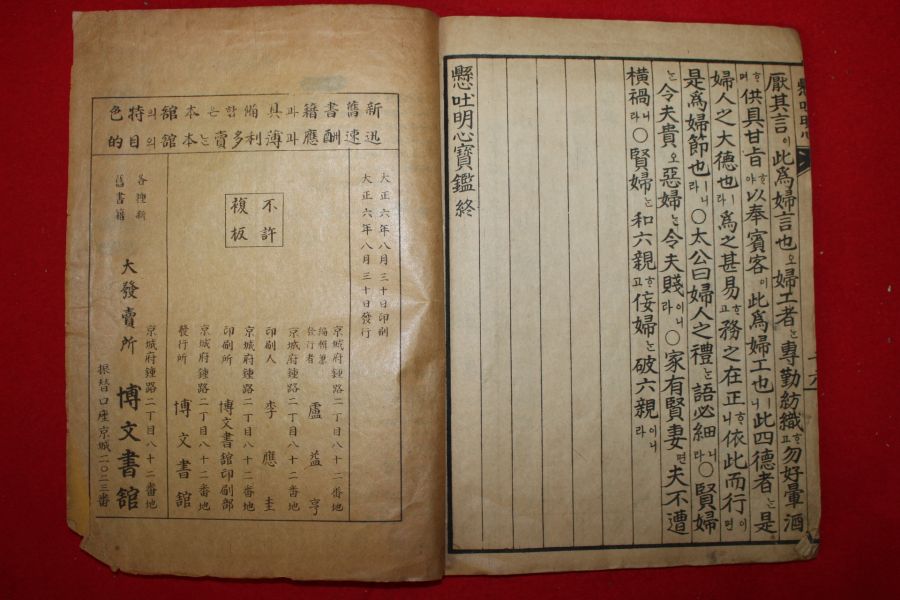 懸吐明心
厭其言이此爲婦言也오婦工者는專勤紡織ᄒᆞ고勿好暈酒
ᄒᆞ며供具甘旨ᄒᆞ야以奉賓客이此爲婦工也ㅣ니此四德者는是
婦人之大德也라爲之甚易ᄒᆞ고務之在正ᄒᆞ니依此而行이면
是爲婦節也ㅣ니라○太公曰婦人之禮는語必細니라○賢婦
는令夫貴오惡婦는令夫賤이니라○家有賢妻면夫不遭
橫禍니라○賢婦는和六親ᄒᆞ고佞婦는破六親이니라
懸吐明心寶鑑終
新舊書籍과具備함은本舘의特色
迅速酬應과薄利多賣는本舘의目的
大正六年八月三十日印刷
大正六年八月三十日發行
不許
複板
京城府鍾路二丁目八十二番地
編輯兼
發行者 盧益亨
京城府鍾路二丁目八十二番地
印刷人 李應圭
京城府鍾路二丁目八十二番地
印刷所 博文書舘印刷部
京城府鍾路二丁目八十二番地
發行所 博文書舘
各種新
舊書籍
大發賣所
京城府鍾路二丁目八十二番地
博文書舘
振替口座京城二〇二三番